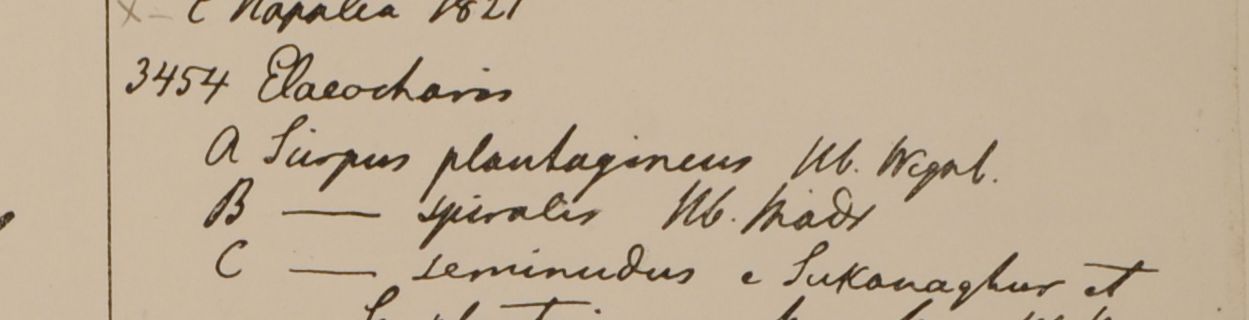 C Napalia 1821
3454 Elaeocharis
A Scirpus plantagineus Hb. Wight.
B — spiralis Hb. Madr
C — seminudus e Sukanaghur et